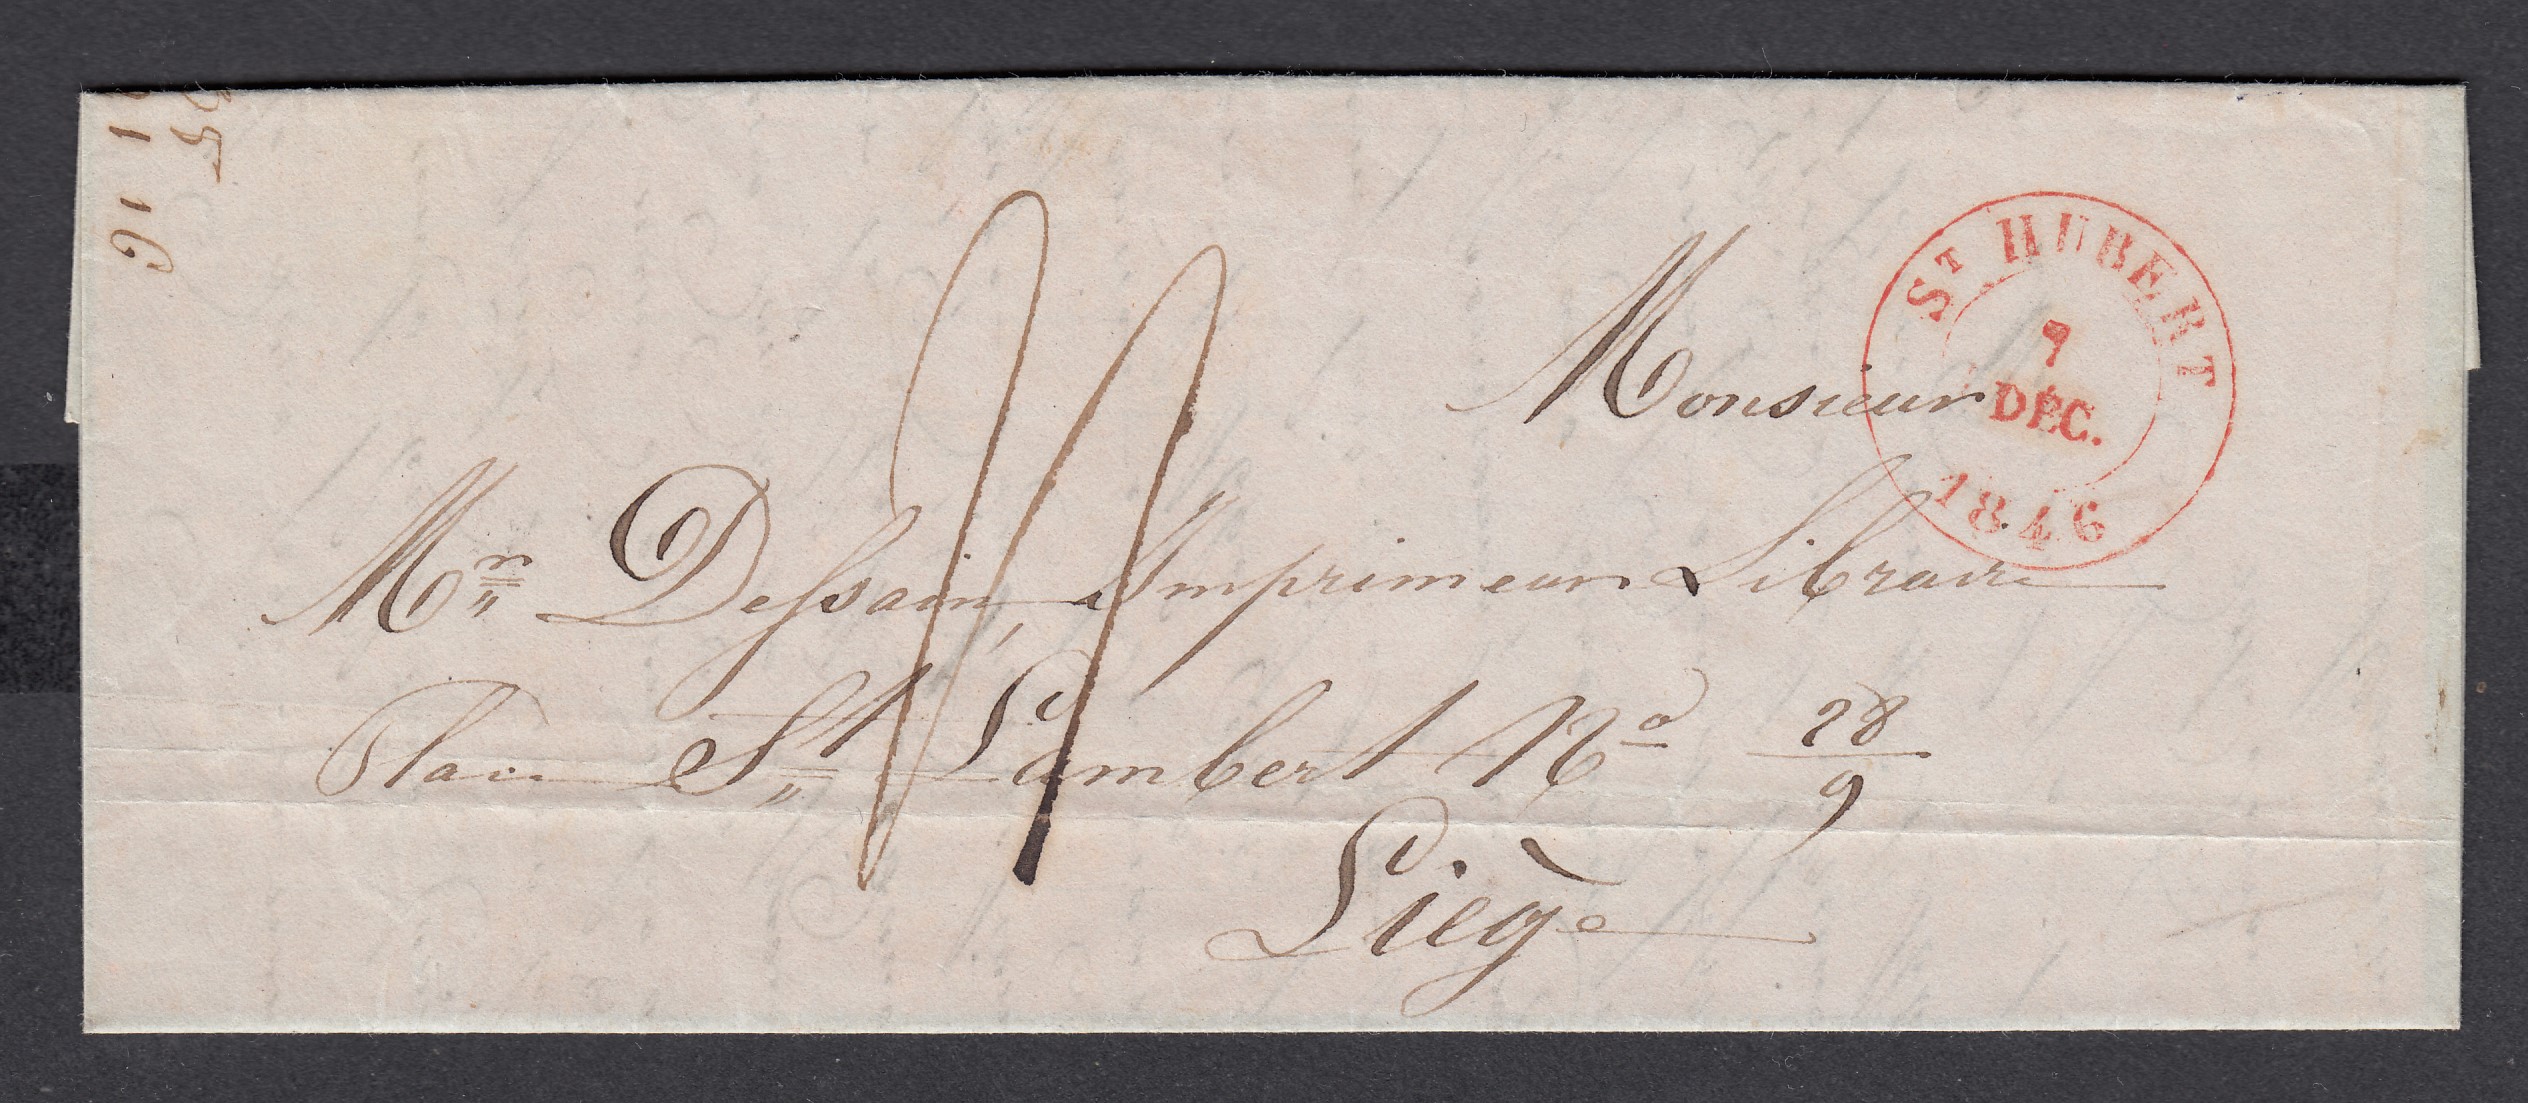 ST HUBERT
7
DÉC.
1846
Monsieur
Mr Dessain, Imprimeur Libraire
Place St Lambert No 28/9
Liège